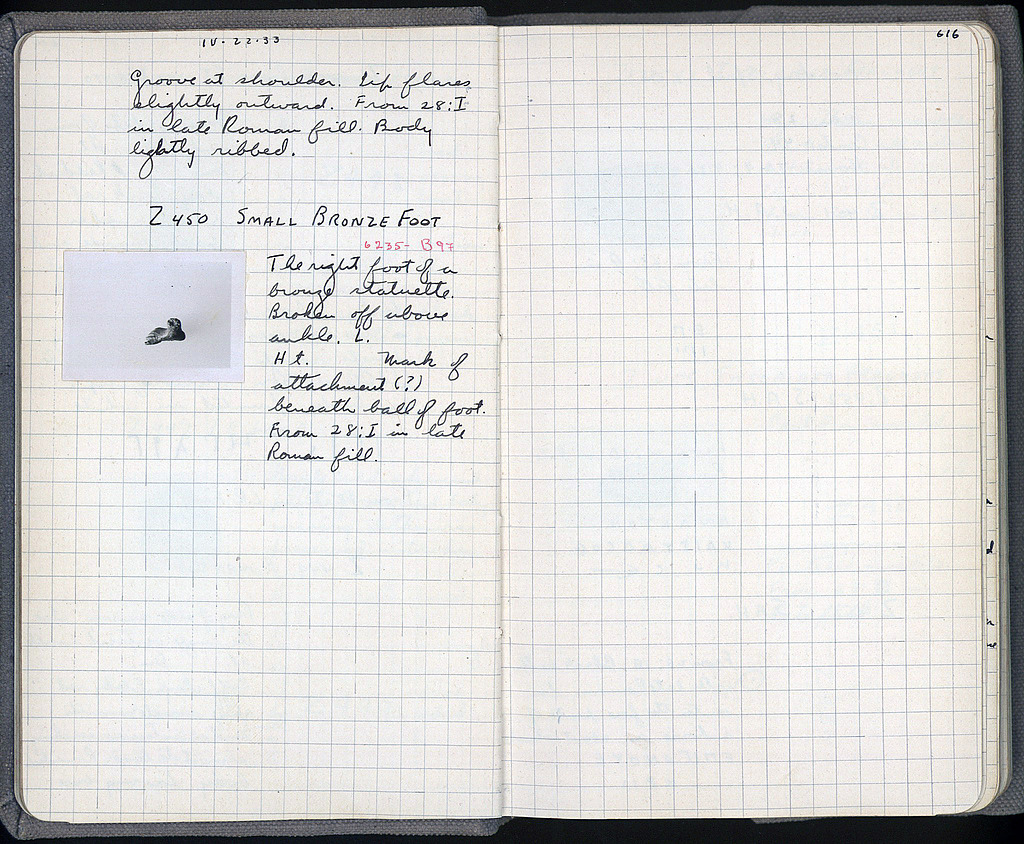 IV-22-33
Groove at shoulder. Lip flares
slightly outward. From 28:I
in late Roman fill. Body
lightly ribbed.
Z 450 SMALL BRONZE FOOT
6235- B97
The right foot of a
bronze statuette.
Broken off above
ankle. L.
Ht. Mark of
attachment (?)
beneath ball of foot.
From 28:I in late
Roman fill.
616